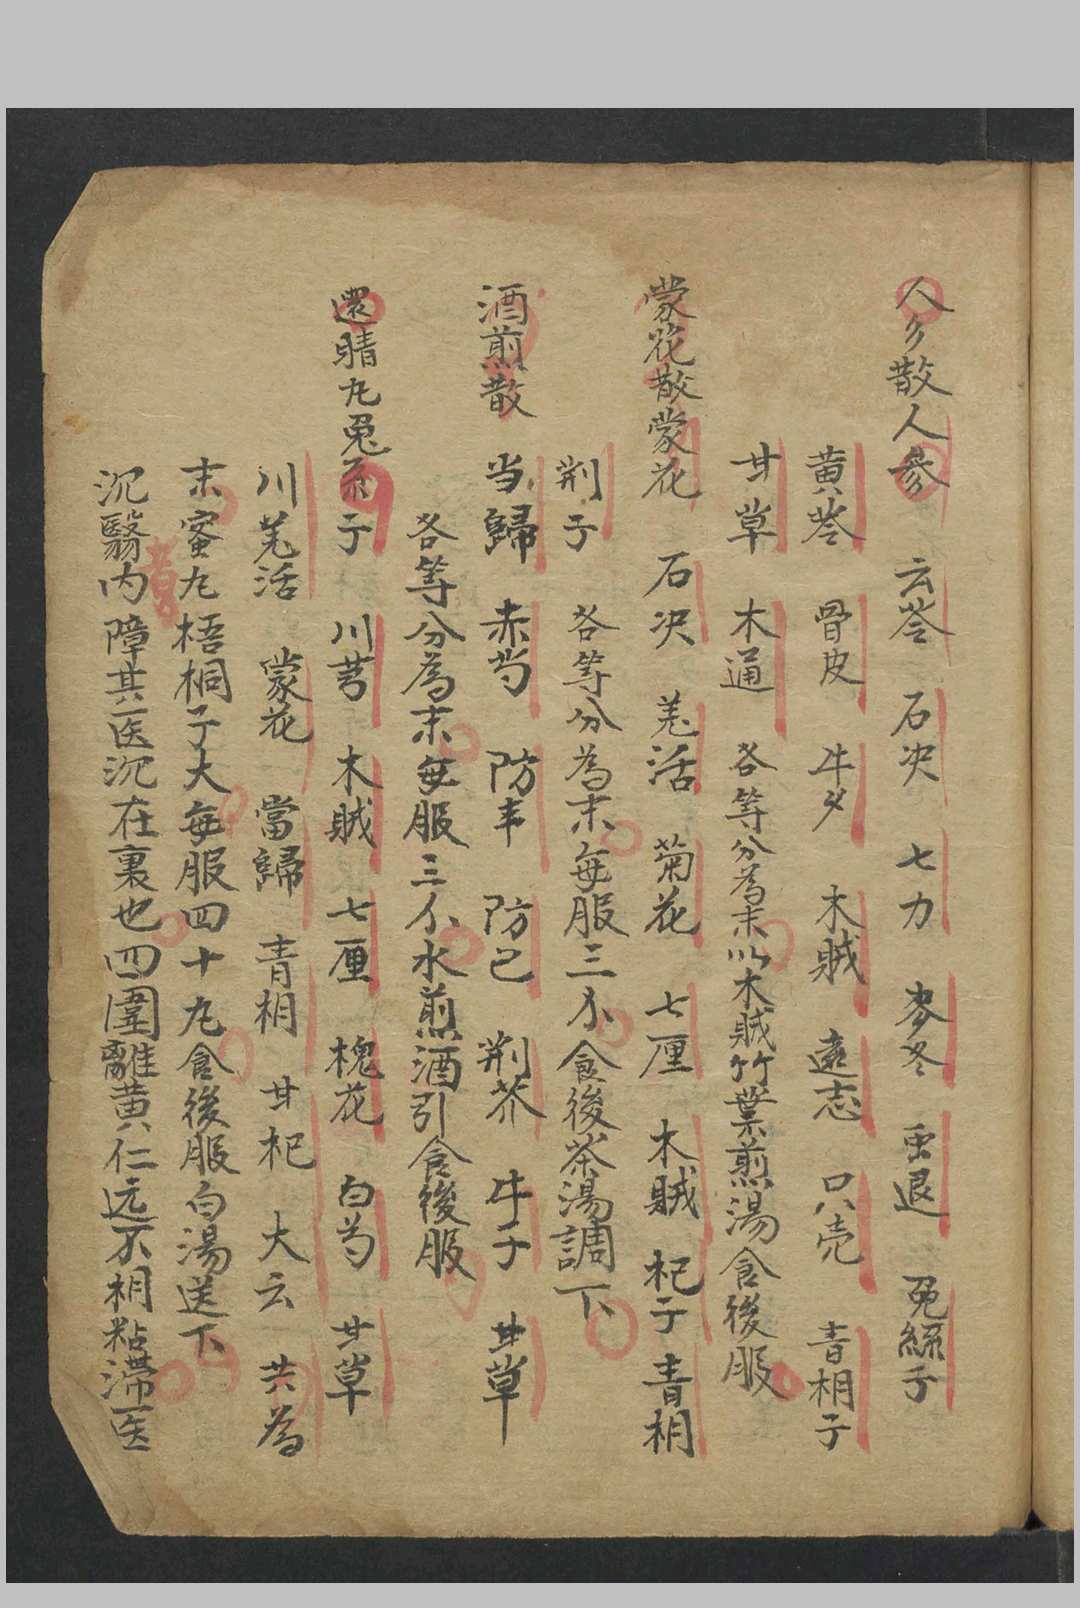 人参散人参 云苓 石决 七力 麦冬 虫退 兔絲子
黄芩 骨皮 牛夕 木賊 遠志 只壳 青相子
甘草 木通 各等分為末以木賊竹葉煎湯食後服
蒙花散蒙花 石决 羌活 菊花 七厘 木賊 杞子 青相
荆子 各等分為末每服三分食後茶湯調下
酒煎散 当歸 赤芍 防丰 防己 荆芥 牛子 甘草
各等分為末每服三分水煎酒引食後服
還睛丸兔糸子 川芎 木賊 七厘 槐花 白芍 甘草
川羌活 蒙花 當歸 青相 甘杞 大云 共為
末蜜丸梧桐子大每服四十丸食後服白湯送下
沉翳内障其医沉在裏也四圍離黄仁远不相粘滞医